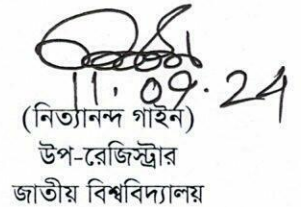 11.09.24
(নিত্যানন্দ গাইন)
উপ-রেজিস্ট্রার
জাতীয় বিশ্ববিদ্যালয়